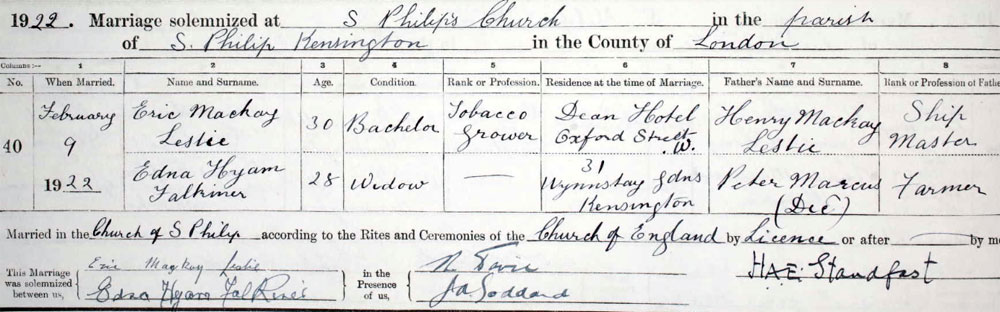 1922. Marriage solemnized at S Philip's Church in the parish
of S. Philip Kensington in the County of London
Columns :— 1 2 3 4 5 6 7 8
No. When Married. Name and Surname. Age. Condition. Rank or Profession. Residence at the time of Marriage. Father's Name and Surname. Rank or Profession of Fathe
40 February 9 1922
Eric Mackay
Leslie
30 Bachelor
Tobacco
grower
Dean Hotel
Oxford Street W.
Henry Mackay
Leslie
Ship
Master
Edna Hyam
Falkiner
28 Widow —
31
Wynnstay Gdns
Kensington
Peter Marcus
(Dec)
Farmer
Married in the Church of S Philip according to the Rites and Ceremonies of the Church of England by Licence or after — by me
This Marriage was solemnized between us,
Eric Mackay Leslie
Edna Hyam Falkiner
in the Presence of us,
J.A. Goddard
H.A.E. Standfast